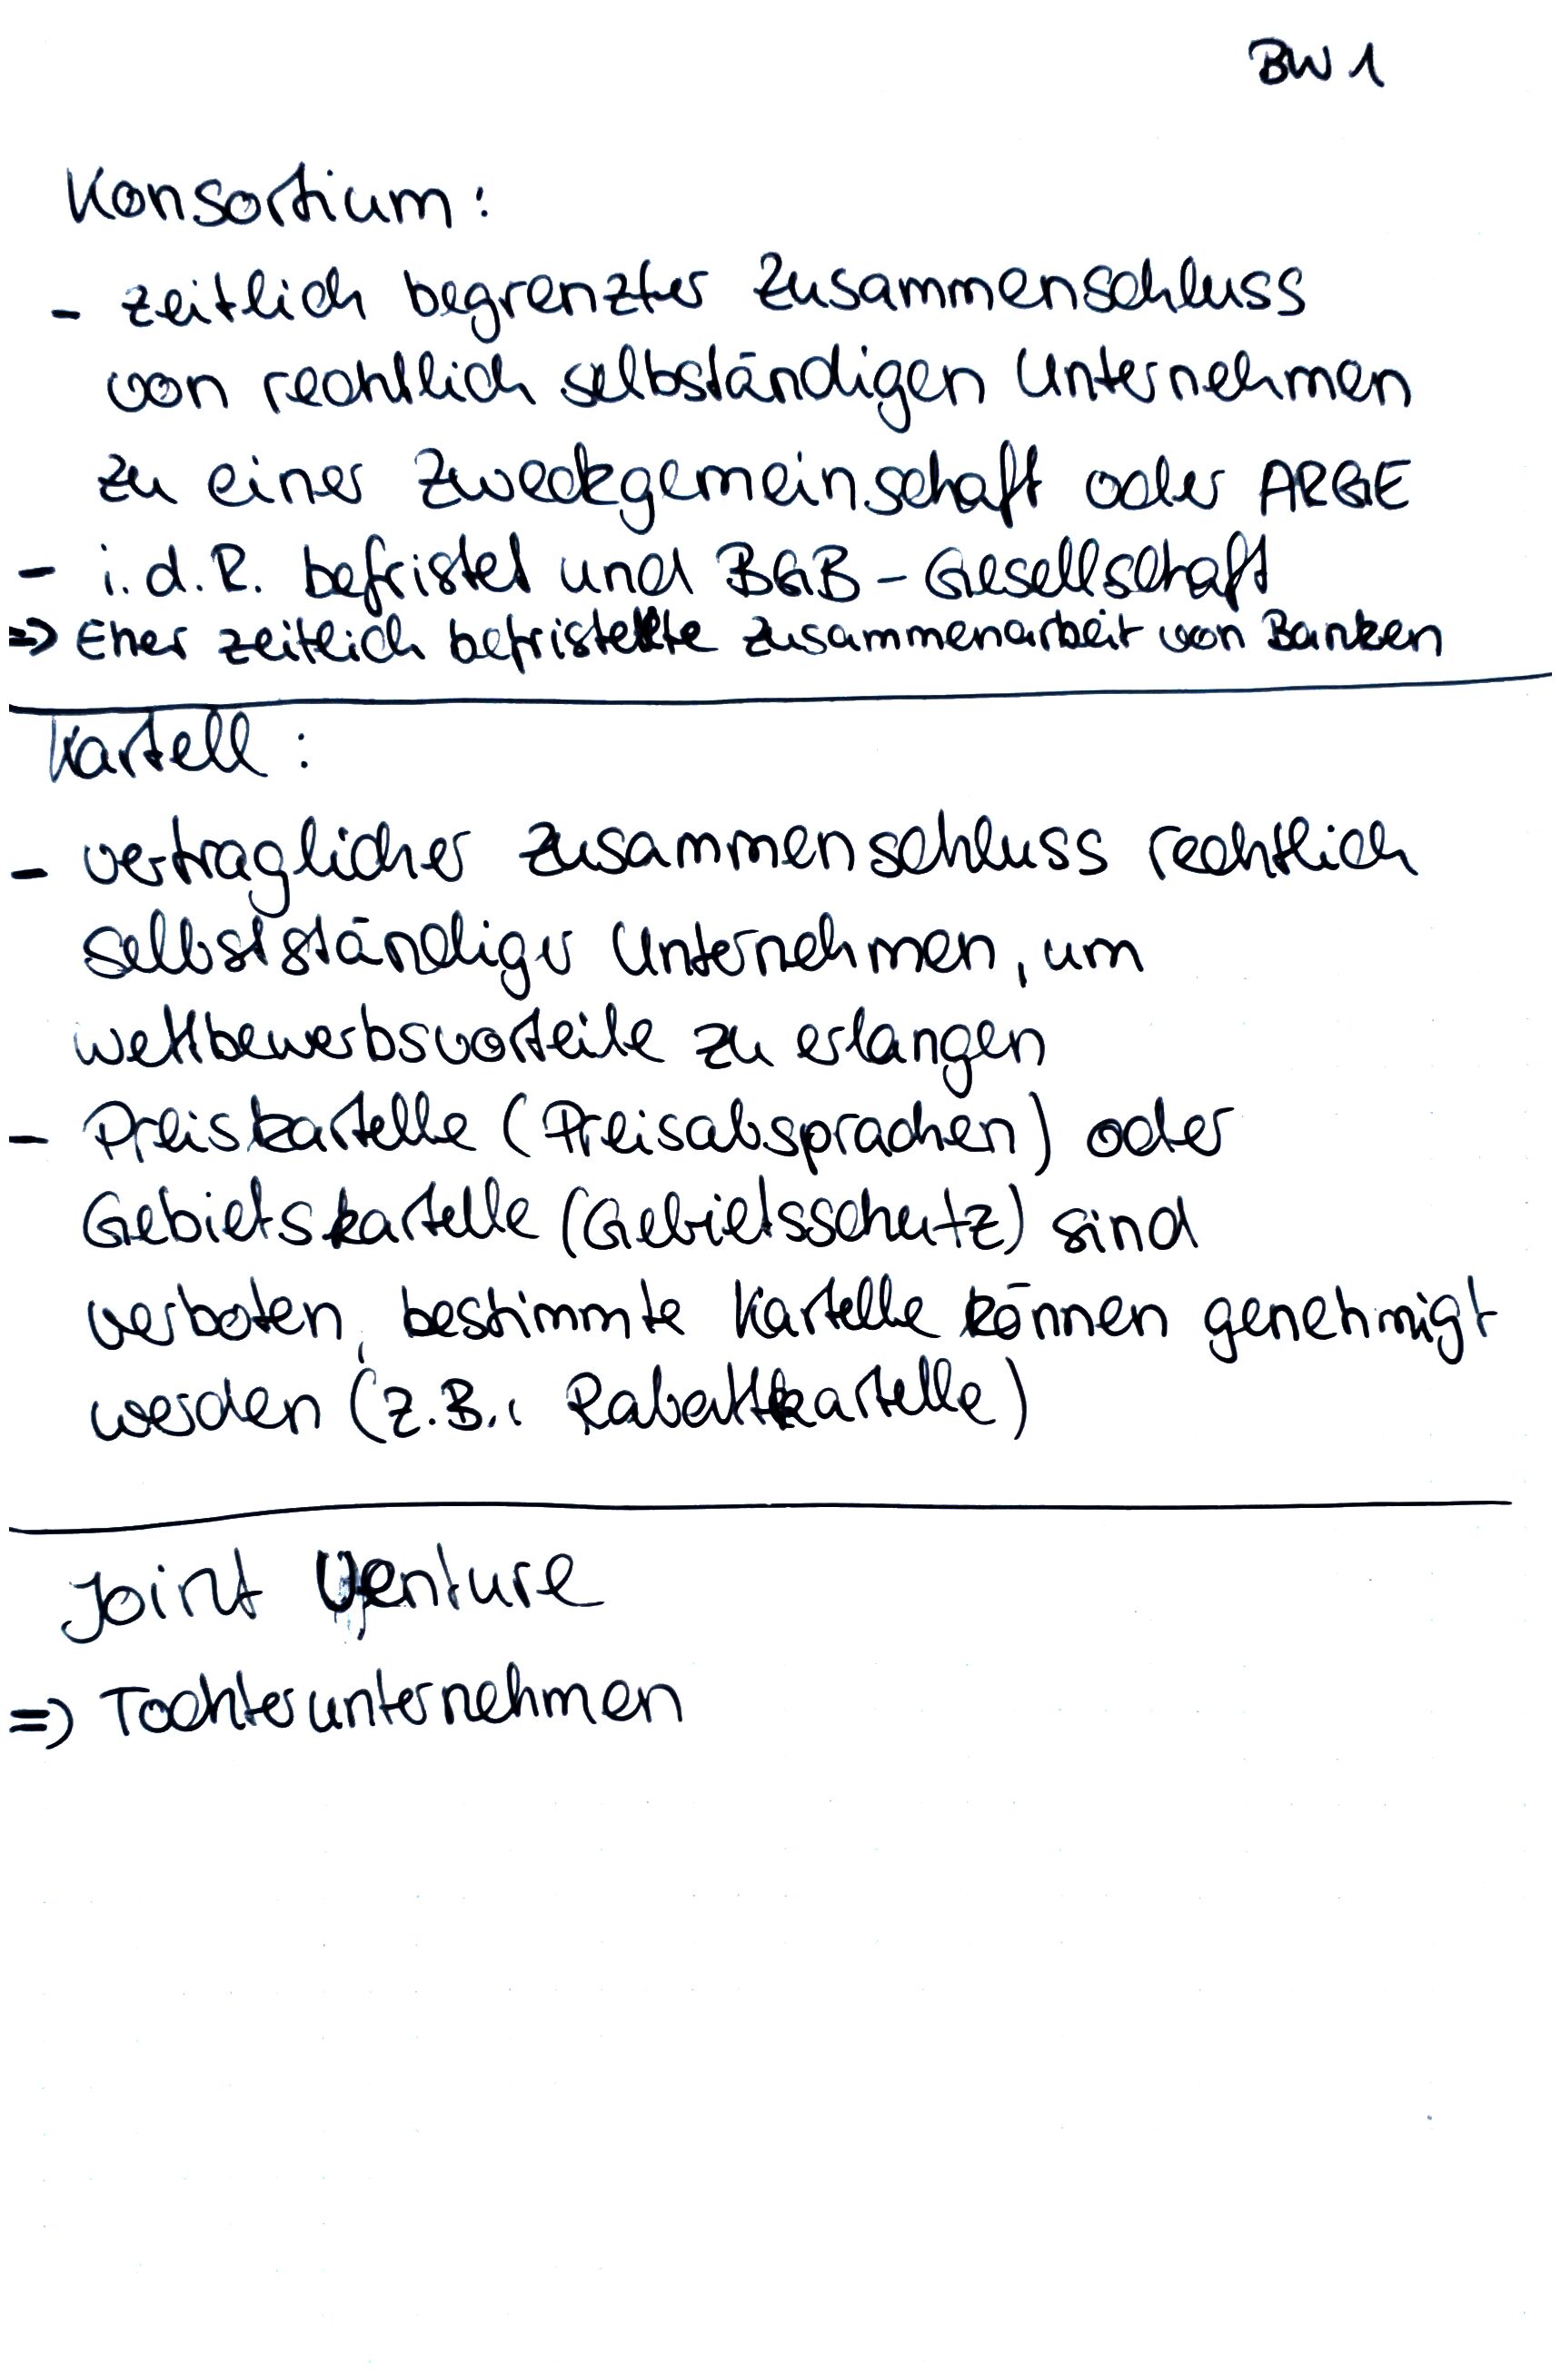 BW 1
Konsortium:
- zeitlich begrenzter Zusammenschluss
von rechtlich selbständigen Unternehmen
zu einer Zweckgemeinschaft oder ARGE
- i.d.R. befristet und BGB-Gesellschaft
=> Eher zeitlich befristete Zusammenarbeit von Banken
Kartell:
- vertraglicher Zusammenschluss rechtlich
selbstständiger Unternehmen, um
Wettbewerbsvorteile zu erlangen
- Preiskartelle (Preisabsprachen) oder
Gebietskartelle (Gebietsschutz) sind
verboten, bestimmte Kartelle können genehmigt
werden (z.B.: Rabattkartelle)
Joint Venture
=> Tochterunternehmen